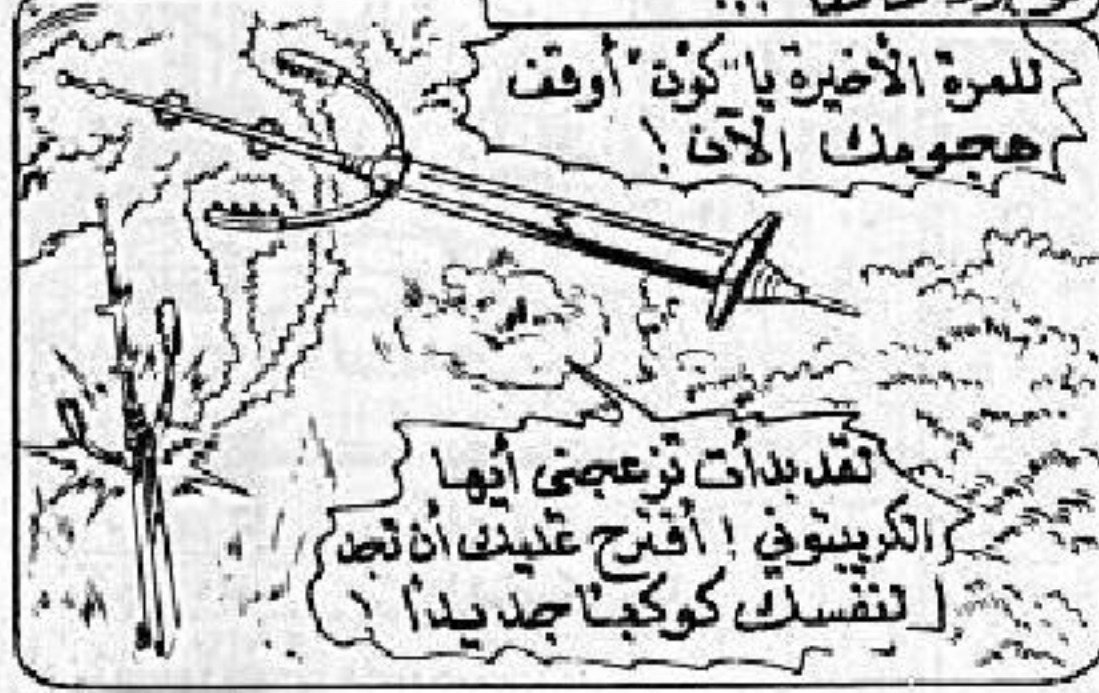 للمرة الأخيرة يا "كون" أوقف
هجومك الآن !
لقد بدأت تزعجني أيها
الكريبتوني ! أقترح عليك أن تجد
لنفسك كوكبًا جديدًا